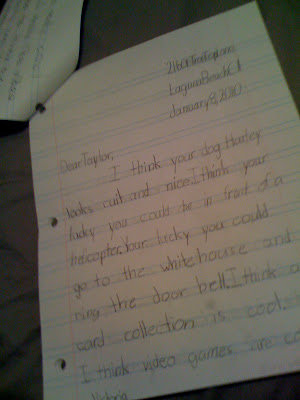 Laguna Beach CA
January 8, 2010
Dear Taylor,
I think your dog Harley
looks cuit and nice. I think your
lucky you could be in front of a
helicopter. Your lucky you could
go to the white house and
ring the door bell. I think
card collection is cool.
I think video games are